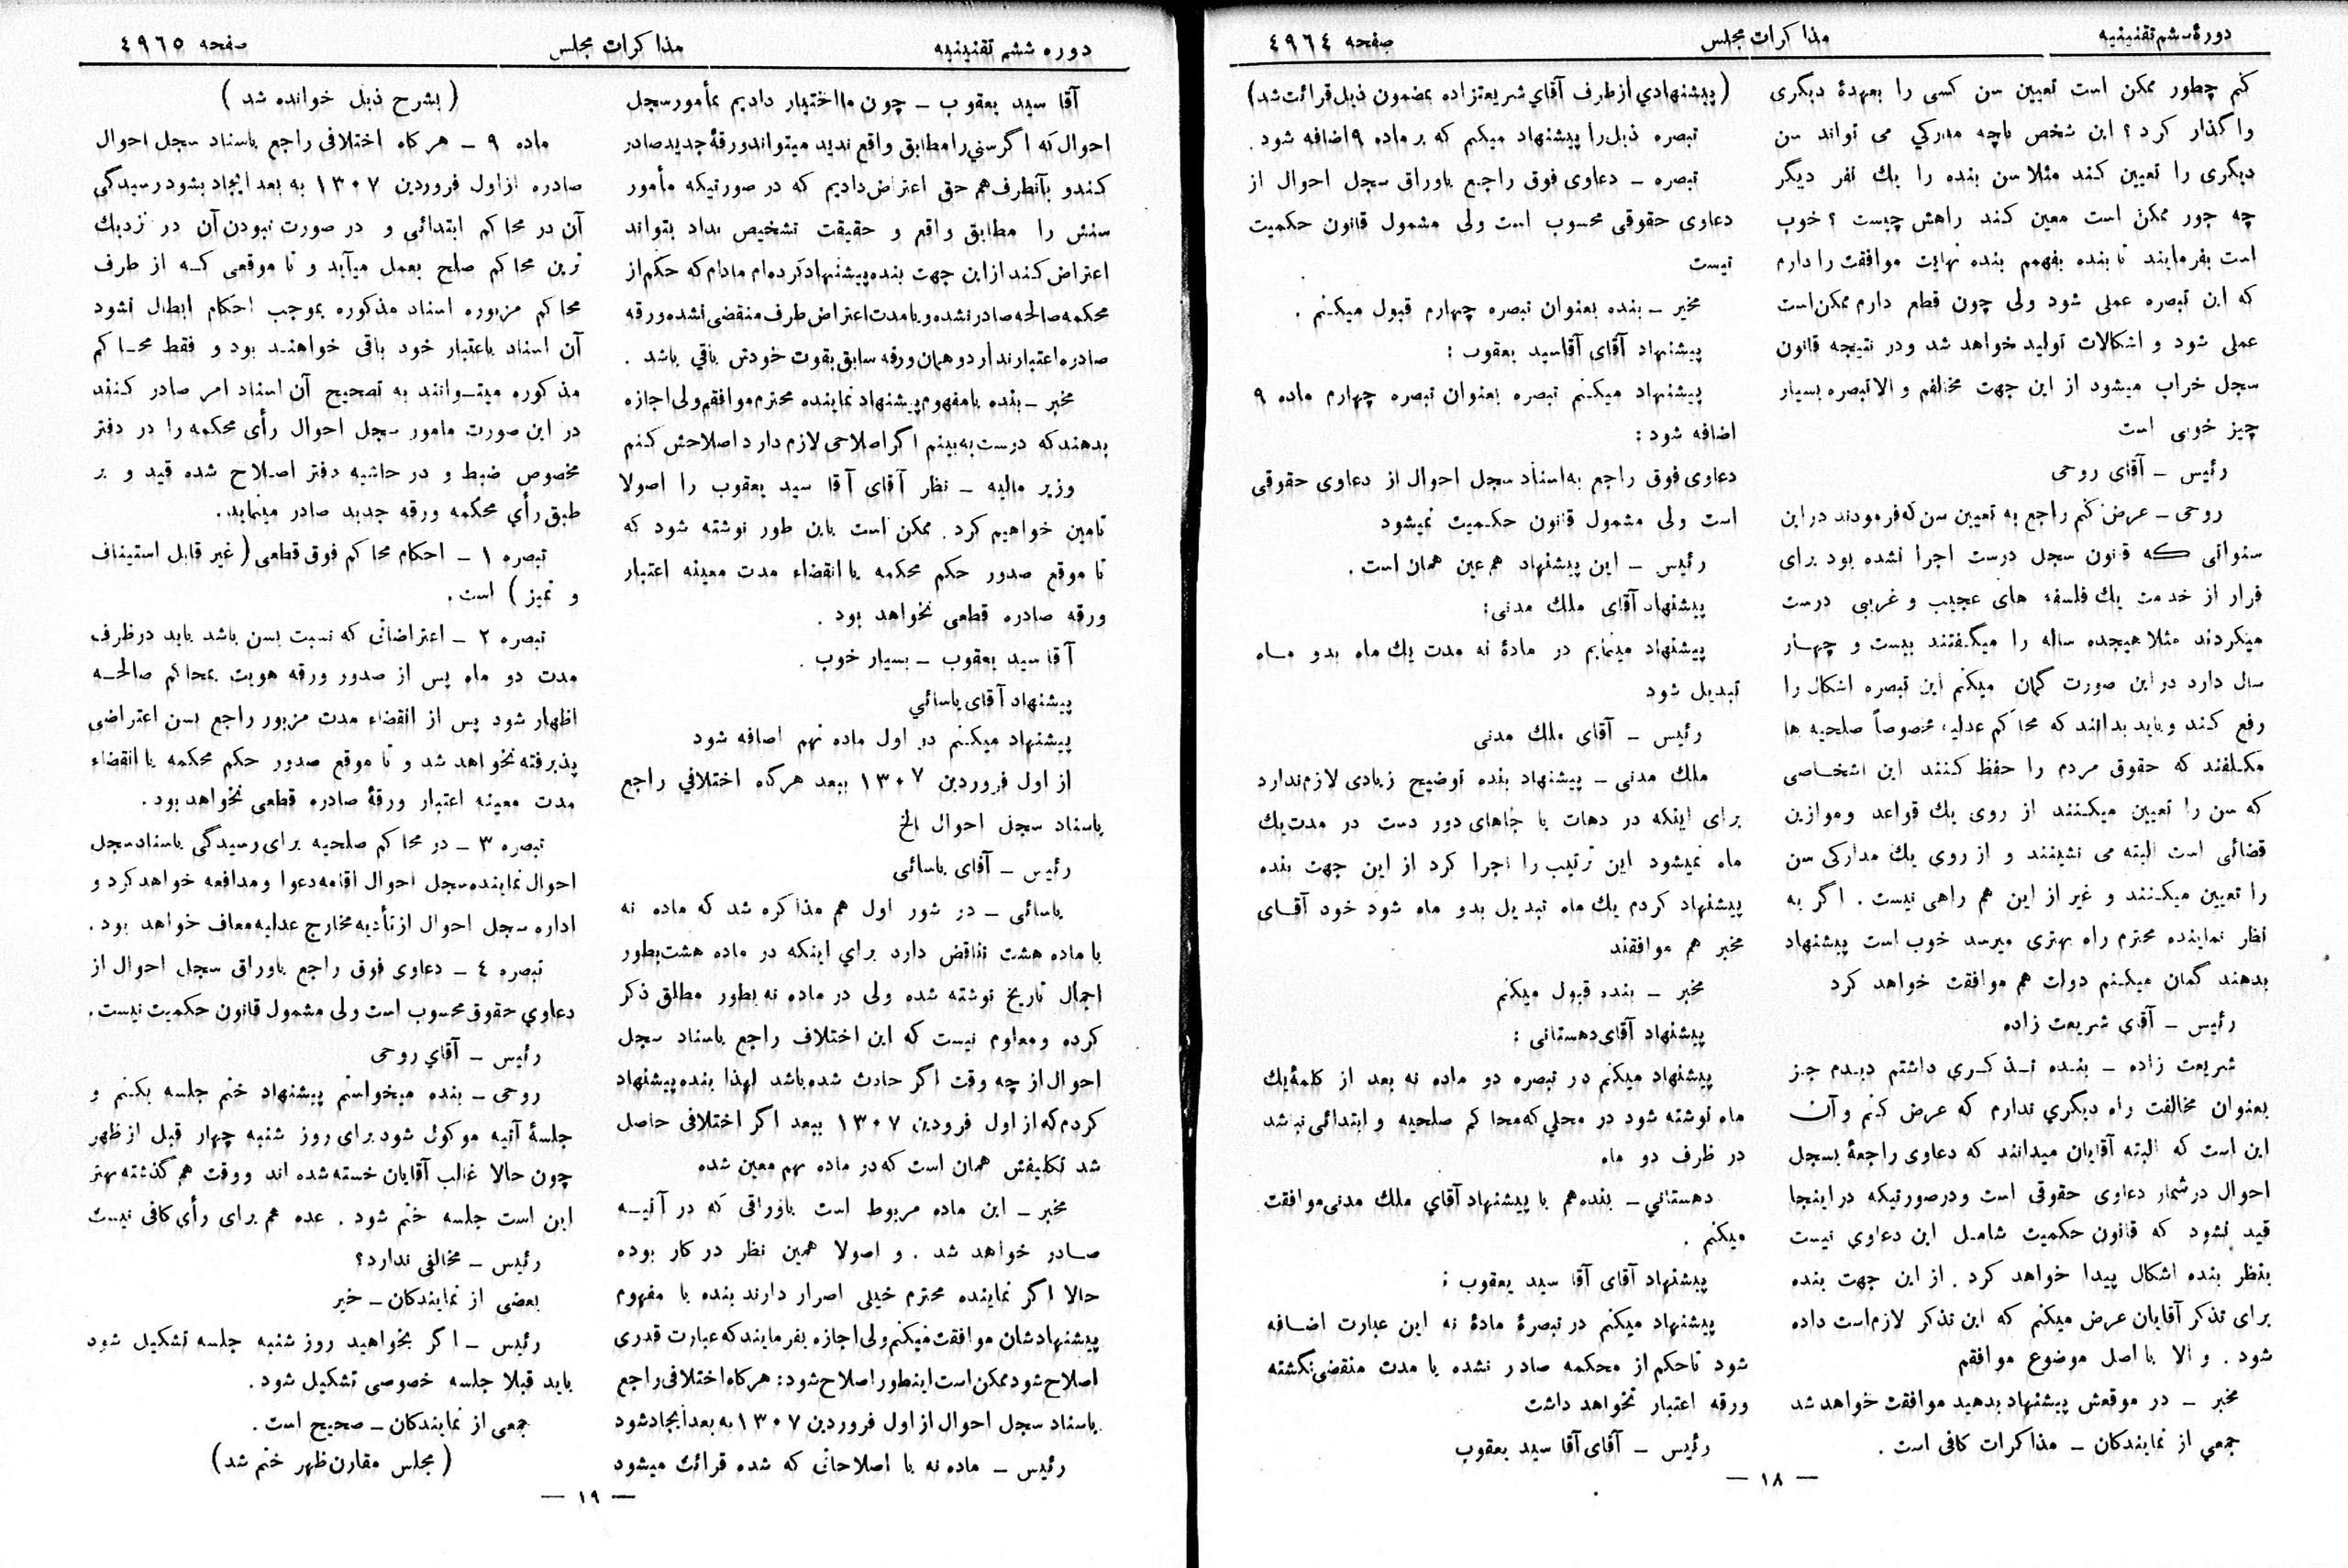 دورهٔ ششم تقنینیه
مذاکرات مجلس
صفحه ٤٩٦٤
کنم چطور ممکن است تعیین سن کسی را بعهدهٔ دیگری
واگذار کرد؟ این شخص باچه مدرکی می تواند سن
دیگری را تعیین کند مثلا سن بنده را یك نفر دیگر
چه جور ممکن است معین کند راهش چیست ؟ خوب
است بفرمایند تا بنده بفهمم بنده نهایت موافقت را دارم
که این تبصره عملی شود ولی چون قطع دارم ممکن است
عملی شود و اشکالات تولید خواهد شد ودر نتیجه قانون
سجل خراب میشود از این جهت مخالفم والا تبصره بسیار
چیز خوبی است
رئیس ــ آقای روحی
روحی ــ عرض کنم راجع به تعیین سن که فرمودند دراین
سنواتی که قانون سجل درست اجرا نشده بود برای
فرار از خدمت یك فلسفه های عجیب و غریبی درست
میکردند مثلا هیجده ساله را میگفتند بیست و چهار
سال دارد دراین صورت گمان میکنم این تبصره اشکال را
رفع کند وباید بدانند که محاکم عدلیه مخصوصاً صلحیه ها
مکلفند که حقوق مردم را حفظ کنند این اشخاصی
که سن را تعیین میکنند از روی یك قواعد وموازین
قضائی است البته می نشینند و از روی یك مدارکی سن
را تعیین میکنند و غیر از این هم راهی نیست . اگر به
نظر نماینده محترم راه بهتری میرسد خوب است پیشنهاد
بدهند گمان میکنم دولت هم موافقت خواهد کرد
رئیس ــ آقای شریعت زاده
شریعت زاده ــ بنده تذکری داشتم دیدم جز
بعنوان مخالفت راه دیگري ندارم که عرض کنم وآن
این است که البته آقایان میدانند که دعاوی راجعهٔ بسجل
احوال درشمار دعاوی حقوقی است ودرصورتیکه دراینجا
قید نشود که قانون حکمیت شامل این دعاوي نیست
بنظر بنده اشکال پیدا خواهد کرد . از این جهت بنده
برای تذکر آقایان عرض میکنم که این تذکر لازم است داده
شود . و الا با اصل موضوع موافقم
مخبر ــ در موقعش پیشنهاد بدهید موافقت خواهد شد
جمعي از نمایندکان ــ مذاکرات کافی است .
(پیشنهادي از طرف آقاي شریعتزاده بمضمون ذیل قرائت شد)
تبصره ذیل را پیشنهاد میکنم که بر ماده ٩ اضافه شود .
تبصره ــ دعاوی فوق راجع باوراق سجل احوال از
دعاوی حقوقی محسوب است ولی مشمول قانون حکمیت
نیست
مخبر ــ بنده بعنوان تبصره چهارم قبول میکنم .
پیشنهاد آقای آقاسید یعقوب :
پیشنهاد میکنم تبصره بعنوان تبصره چهارم ماده ٩
اضافه شود :
دعاوی فوق راجع به اسناد سجل احوال از دعاوی حقوقی
است ولی مشمول قانون حکمیت نمیشود
رئیس ــ این پیشنهاد هم عین همان است .
پیشنهاد آقای ملك مدنی:
پیشنهاد مینمایم در مادهٔ نه مدت یك ماه بدو ماه
تبدیل شود
رئیس ــ آقای ملك مدنی
ملك مدنی ــ پیشنهاد بنده توضیح زیادی لازم ندارد
برای اینکه در دهات یا جاهای دور دست در مدت یك
ماه نمیشود این ترتیب را اجرا کرد از این جهت بنده
پیشنهاد کردم یك ماه تبدیل بدو ماه شود خود آقای
مخبر هم موافقند
مخبر ــ بنده قبول میکنم
پیشنهاد آقای دهستانی :
پیشنهاد میکنم در تبصره دو ماده نه بعد از کلمهٔ یك
ماه نوشته شود در محلي که محاکم صلحیه و ابتدائی نباشد
در ظرف دو ماه
دهستاني ــ بنده هم با پیشنهاد آقاي ملك مدنی موافقت
میکنم .
پیشنهاد آقای آقا سید یعقوب :
پیشنهاد میکنم در تبصرهٔ مادهٔ نه این عبارت اضافه
شود تاحکم از محکمه صادر نشده یا مدت منقضی نگشته
ورقه اعتبار نخواهد داشت
رئیس ــ آقای آقا سید یعقوب
— ١٨ —
دوره ششم تقنینیه
مذاکرات مجلس
صفحه ٤٩٦٥
آقا سید یعقوب ــ چون ما اختیار دادیم بمأمور سجل
احوال که اگر سني را مطابق واقع ندید میتواند ورقهٔ جدید صادر
کند و بآنطرف هم حق اعتراض دادیم که در صورتیکه مأمور
سنش را مطابق واقع و حقیقت تشخیص نداد بتواند
اعتراض کند از این جهت بنده پیشنهاد کرده ام مادام که حکم از
محکمه صالحه صادر نشده و یا مدت اعتراض طرف منقضی نشده ورقه
صادره اعتبار ندارد و همان ورقه سابق بقوت خودش باقي باشد .
مخبر ــ بنده با مفهوم پیشنهاد نماینده محترم موافقم ولی اجازه
بدهند که درست به بینم اگر اصلاحی لازم دارد اصلاحش کنم
وزیر مالیه ــ نظر آقای آقا سید یعقوب را اصولا
تامین خواهیم کرد . ممکن است باین طور نوشته شود که
تا موقع صدور حکم محکمه یا انقضاء مدت معینه اعتبار
ورقه صادره قطعی نخواهد بود .
آقا سید یعقوب ــ بسیار خوب .
پیشنهاد آقای یاسائي
پیشنهاد میکنم در اول ماده نهم اضافه شود
از اول فروردین ١٣٠٧ ببعد هرگاه اختلافي راجع
باسناد سجل احوال الخ
رئیس ــ آقای یاسائی
یاسائی ــ در شور اول هم مذاکره شد که ماده نه
با ماده هشت تناقض دارد براي اینکه در ماده هشت بطور
اجمال تاریخ نوشته شده ولی در ماده نه بطور مطلق ذکر
کرده و معلوم نیست که این اختلاف راجع باسناد سجل
احوال از چه وقت اگر حادث شده باشد لهذا بنده پیشنهاد
کردم که از اول فرودین ١٣٠٧ ببعد اگر اختلافی حاصل
شد تکلیفش همان است که در ماده نهم معین شده
مخبر ــ این ماده مربوط است باوراقی که در آتیه
صادر خواهد شد . و اصولا همین نظر در کار بوده
حالا اگر نماینده محترم خیلی اصرار دارند بنده با مفهوم
پیشنهادشان موافقت میکنم ولی اجازه بفرمایند که عبارت قدری
اصلاح شود ممکن است اینطور اصلاح شود: هرکاه اختلافی راجع
باسناد سجل احوال از اول فروردین ١٣٠٧ به بعد ایجاد شود
رئیس ــ ماده نه با اصلاحاتی که شده قرائت میشود
( بشرح ذیل خوانده شد )
ماده ٩ ــ هرکاه اختلافی راجع باسناد سجل احوال
صادره از اول فروردین ١٣٠٧ به بعد ایجاد بشود رسیدگی
آن در محاکم ابتدائی و در صورت نبودن آن در نزدیك
ترین محاکم صلح بعمل میآید و تا موقعی که از طرف
محاکم مزبوره اسناد مذکوره بموجب احکام ابطال نشود
آن اسناد باعتبار خود باقی خواهند بود و فقط محاکم
مذکوره میتوانند به تصحیح آن اسناد امر صادر کنند
در این صورت مامور سجل احوال رأی محکمه را در دفتر
مخصوص ضبط و در حاشیه دفتر اصلاح شده قید و بر
طبق رأي محکمه ورقه جدید صادر مینماید.
تبصره ١ ــ احکام محاکم فوق قطعی ( غیر قابل استیناف
و تمیز ) است .
تبصره ٢ ــ اعتراضاتی که نسبت بسن باشد باید در ظرف
مدت دو ماه پس از صدور ورقه هویت بمحاکم صالحه
اظهار شود پس از انقضاء مدت مزبور راجع بسن اعتراضی
پذیرفته نخواهد شد و تا موقع صدور حکم محکمه یا انقضاء
مدت معینه اعتبار ورقهٔ صادره قطعی نخواهد بود .
تبصره ٣ ــ در محاکم صلحیه برای رسیدگی باسناد سجل
احوال نماینده سجل احوال اقامه دعوا و مدافعه خواهد کرد و
اداره سجل احوال از تأدیه مخارج عدلیه معاف خواهد بود .
تبصره ٤ ــ دعاوی فوق راجع باوراق سجل احوال از
دعاوي حقوق محسوب است ولی مشمول قانون حکمیت نیست .
رئیس ــ آقاي روحی
روحی ــ بنده میخواستم پیشنهاد ختم جلسه بکنم و
جلسهٔ آتیه موکول شود برای روز شنبه چهار قبل از ظهر
چون حالا غالب آقایان خسته شده اند و وقت هم گذشته بهتر
این است جلسه ختم شود . عده هم برای رأی کافی نیست
رئیس ــ مخالفی ندارد؟
بعضی از نمایندکان ــ خیر
رئیس ــ اگر بخواهید روز شنبه جلسه تشکیل شود
باید قبلا جلسه خصوصی تشکیل شود .
جمعی از نمایندکان ــ صحیح است .
( مجلس مقارن ظهر ختم شد)
— ١٩ —